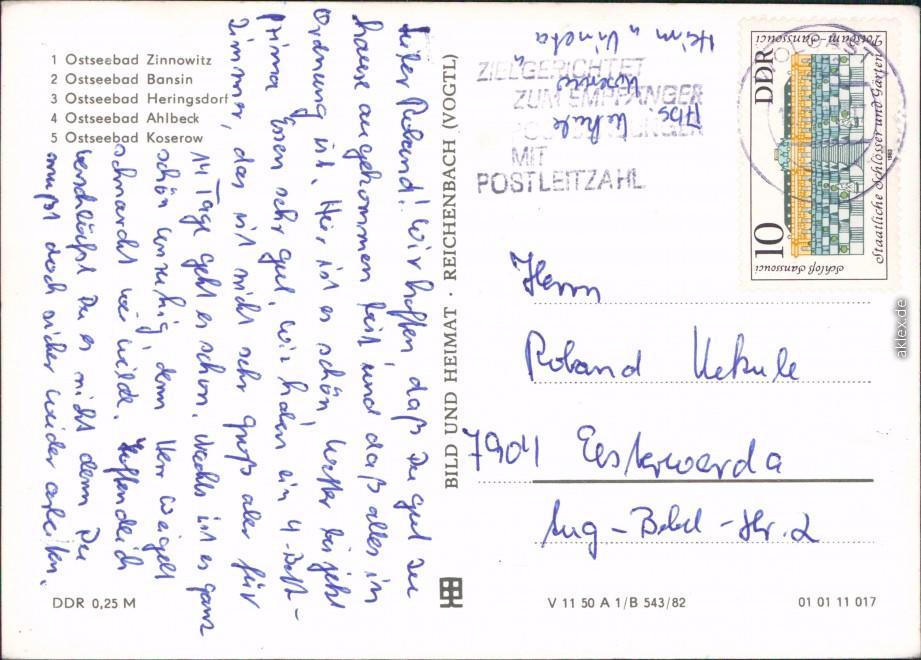 1 Ostseebad Zinnowitz
2 Ostseebad Bansin
3 Ostseebad Heringsdorf
4 Ostseebad Ahlbeck
5 Ostseebad Koserow
Lieber Roland! Wir hoffen, daß Du gut zu
hause angekommen bist und daß alles in
Ordnung ist. Hier ist es schön, Wetter bis jetzt
prima Essen sehr gut, wir haben ein 4-Bett-
Zimmer, das ist nicht sehr groß aber für
14 Tage geht es schon. Nachts ist es ganz
schön unruhig denn Herr Weigelt
schnarcht wie wilde. Hoffendlich
verschläfst Du es nicht denn Du
mußt doch sicher wieder arbeiten.
BILD UND HEIMAT · REICHENBACH (VOGTL)
Abs Kekule
Heim "Vineta"
ZIELGERICHTET
ZUM EMPFÄNGER
MIT
POSTLEITZAHL
WOLGAST
DDR
10
Potsdam-Sanssouci
Schloß Sanssouci
Staatliche Schlösser und Gärten
1983
Herrn
Roland Kekule
7904 Elsterwerda
Aug-Bebel-Str. 2
DDR 0,25 M
V 11 50 A 1/B 543/82
01 01 11 017
aklex.de